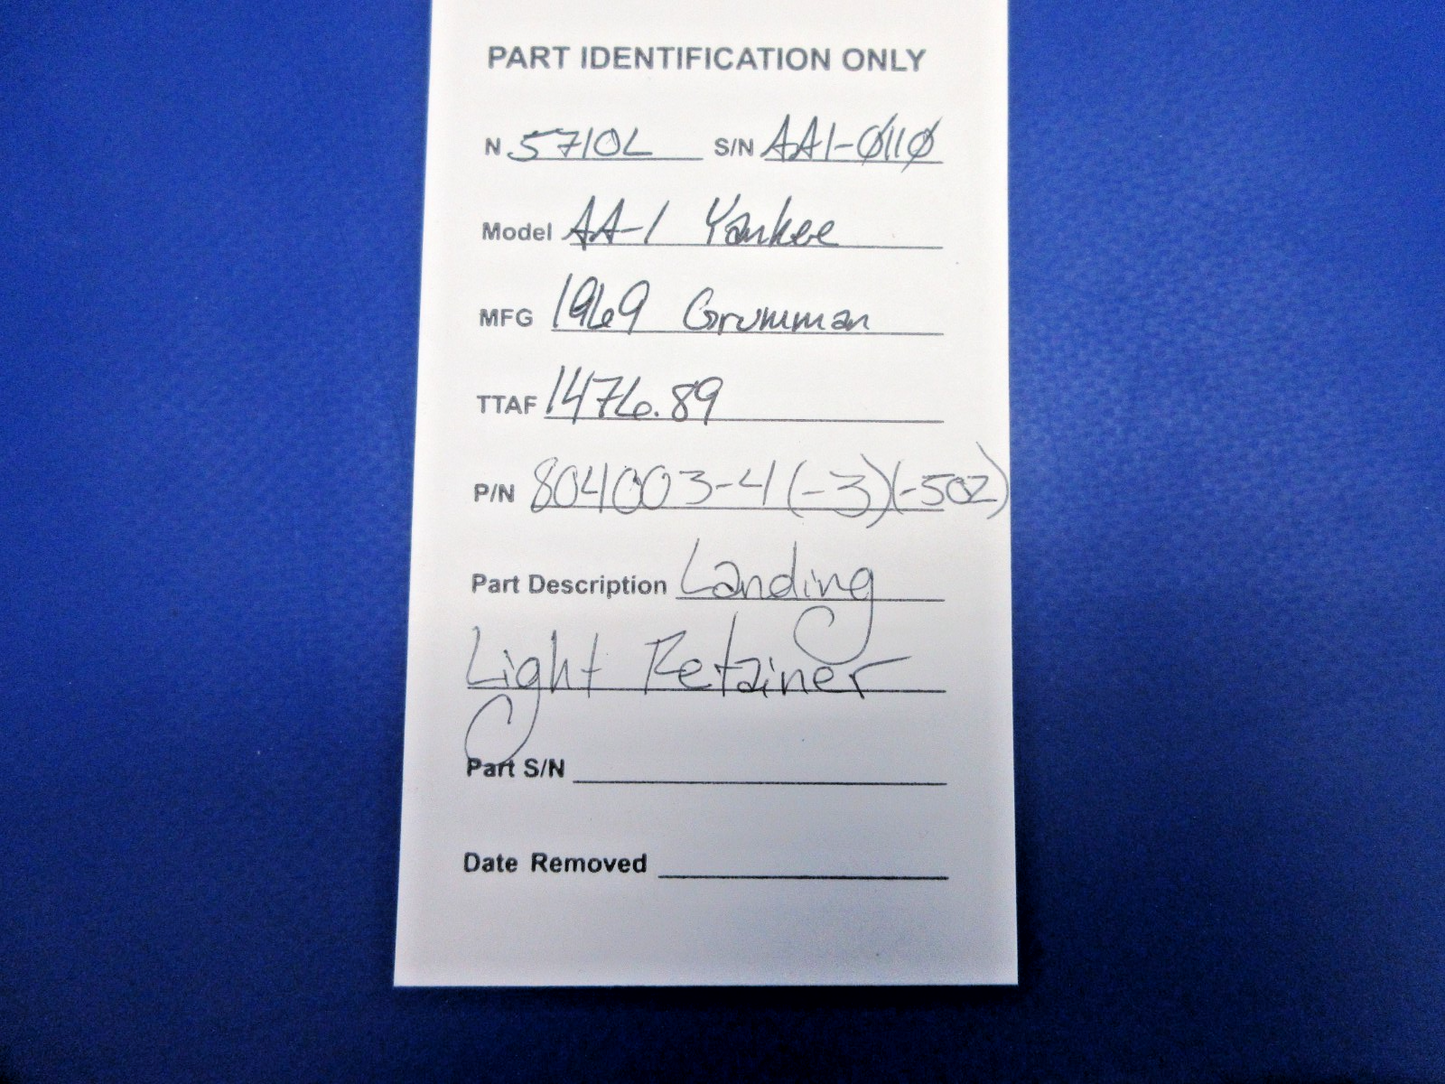 PART IDENTIFICATION ONLY
N 5710L S/N AA1-0110
Model AA-1 Yankee
MFG 1969 Grumman
TTAF 1476.89
P/N 804003-4 (-3)(-502)
Part Description Landing
Light Retainer
Part S/N
Date Removed